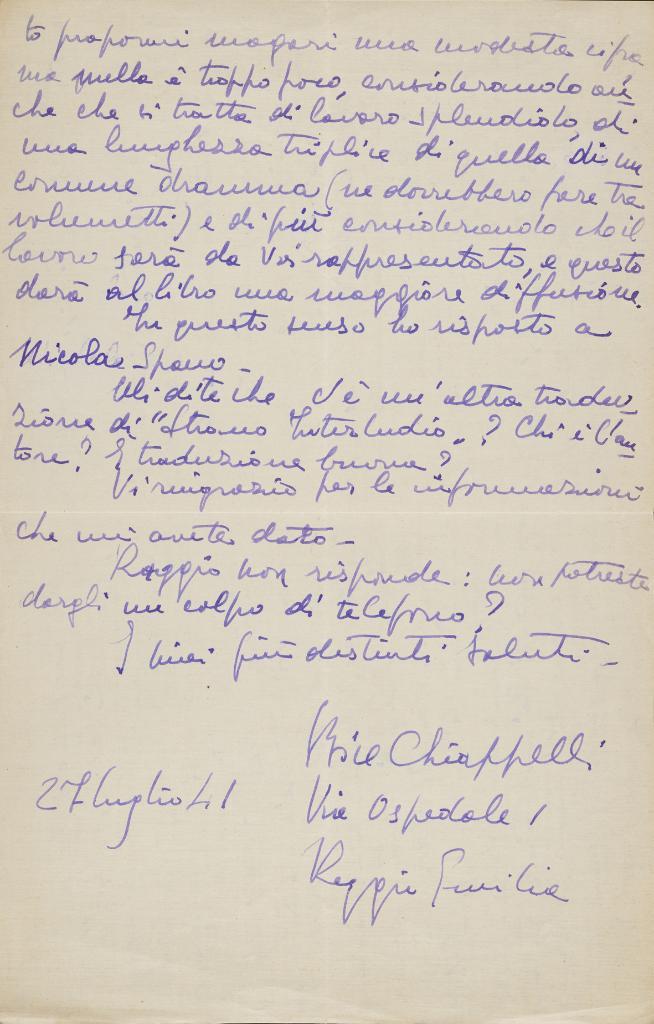 to propormi magari una modesta cifra
ma nulla è troppo poco, considerando an-
che che si tratta di lavoro splendido, di
una lunghezza triplice di quella di un
comune dramma (ne dovrebbero fare tre
volumetti) e di più considerando che il
lavoro sarà da Voi rappresentato, e questo
darà al libro una maggiore diffusione.
In questo senso ho risposto a
Nicola Spano -
Mi dite che c'è un'altra tradu-
zione di "Strano Interludio„? Chi è l'au-
tore? È traduzione buona?
Vi ringrazio per le informazioni
che mi avete dato -
Raggio non risponde: non potreste
dargli un colpo di telefono?
I miei più distinti saluti -
Bice Chiappelli
27 luglio 41
Via Ospedale 1
Reggio Emilia